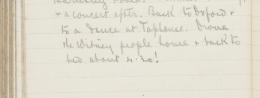 & a concert after. Back to Oxford &
to a dance at Taphouse. Drove
the Witney people home & back to
bed about 4.30!